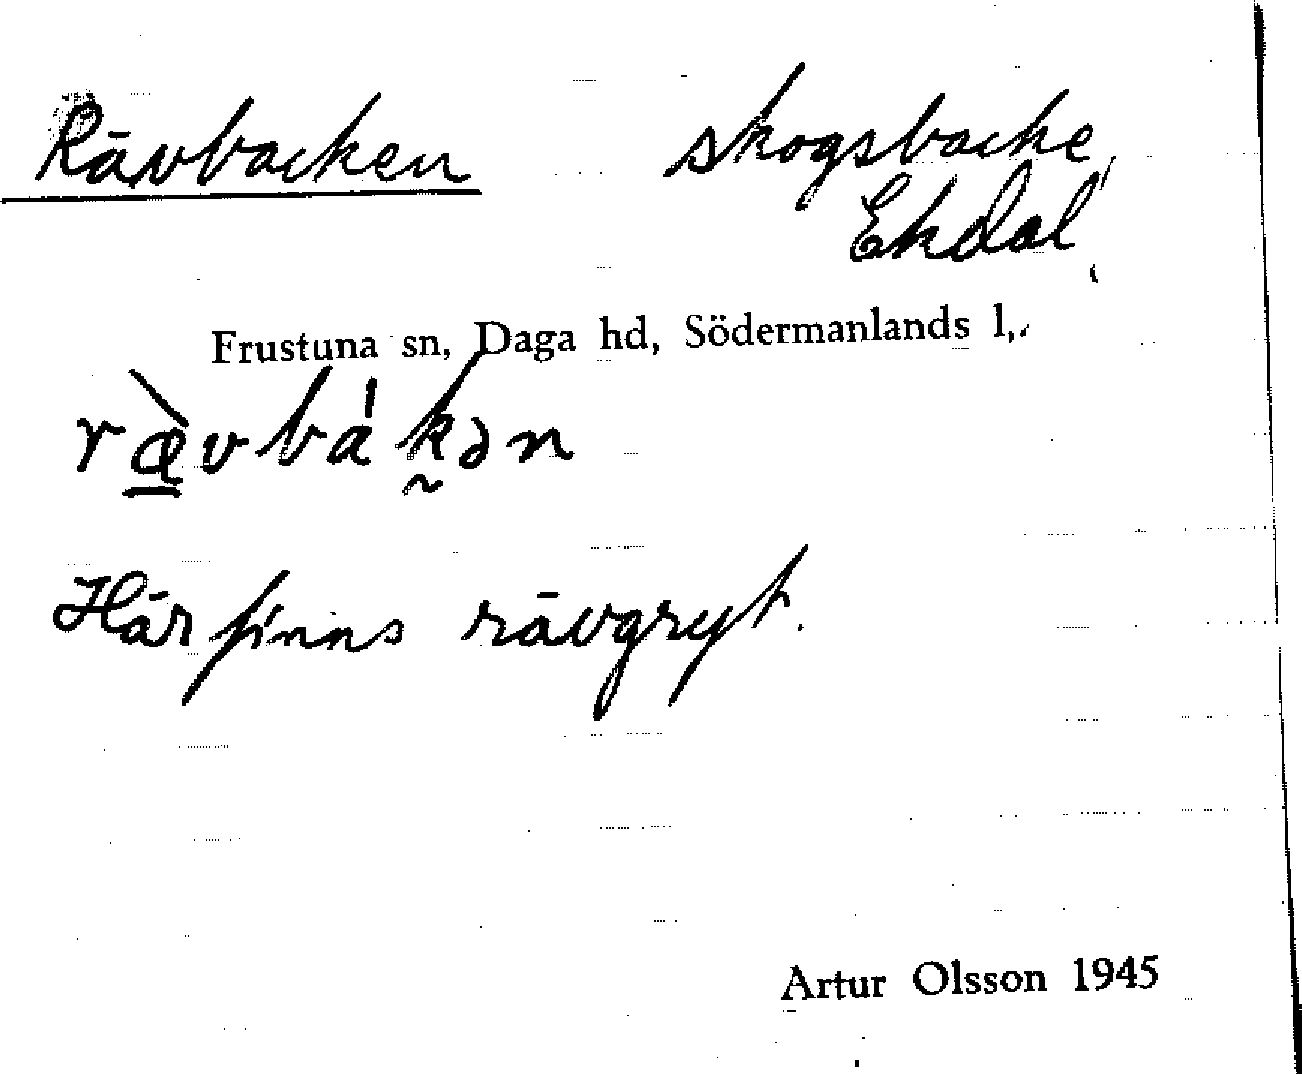 Rävbacken skogsbacke,
Ekdal,
Frustuna sn, Daga hd, Södermanlands l,.
ræ̲̀vbákən
Här finns rävgryt.
Artur Olsson 1945